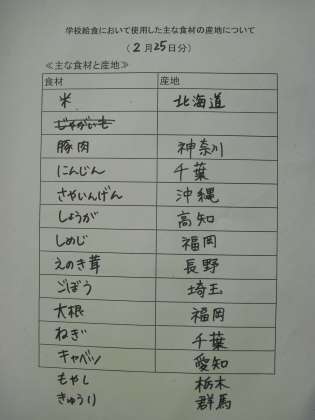 学校給食において使用した主な食材の産地について
(2月25日分)
≪主な食材と産地≫
食材 産地
米 北海道
じゃがいも
豚肉 神奈川
にんじん 千葉
さやいんげん 沖縄
しょうが 高知
しめじ 福岡
えのき茸 長野
ごぼう 埼玉
大根 福岡
ねぎ 千葉
キャベツ 愛知
もやし 栃木
きゅうり 群馬